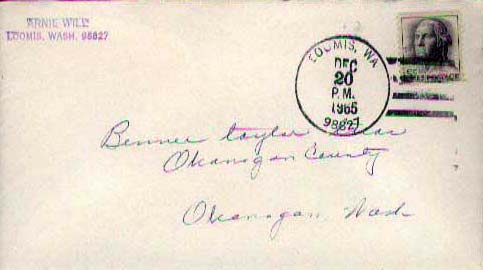 ARNIE WILL
LOOMIS, WASH. 98827
LOOMIS, WA
DEC
20
P.M.
1965
98827
taylor
Okanogan County
Okanogan, Wash